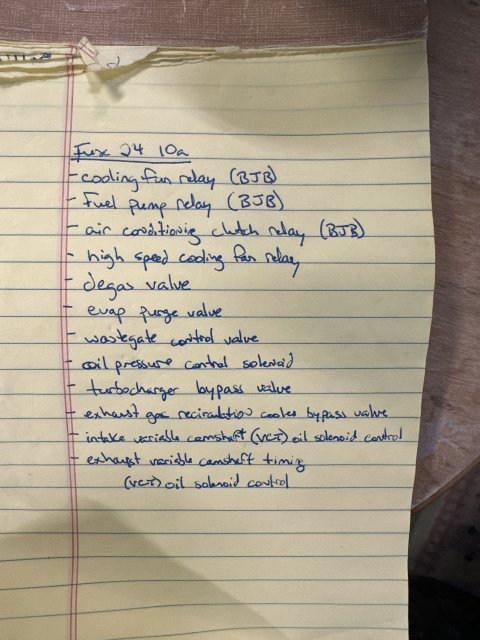 Fuse 24 10a
- cooling fan relay (BJB)
- Fuel pump relay (BJB)
- air conditioning clutch relay (BJB)
- high speed cooling fan relay
- degas valve
- evap purge valve
- wastegate control valve
- oil pressure control solenoid
- turbocharger bypass valve
- exhaust gas recirculation cooler bypass valve
- intake variable camshaft (VCT) oil solenoid control
- exhaust variable camshaft timing
(VCT) oil solenoid control